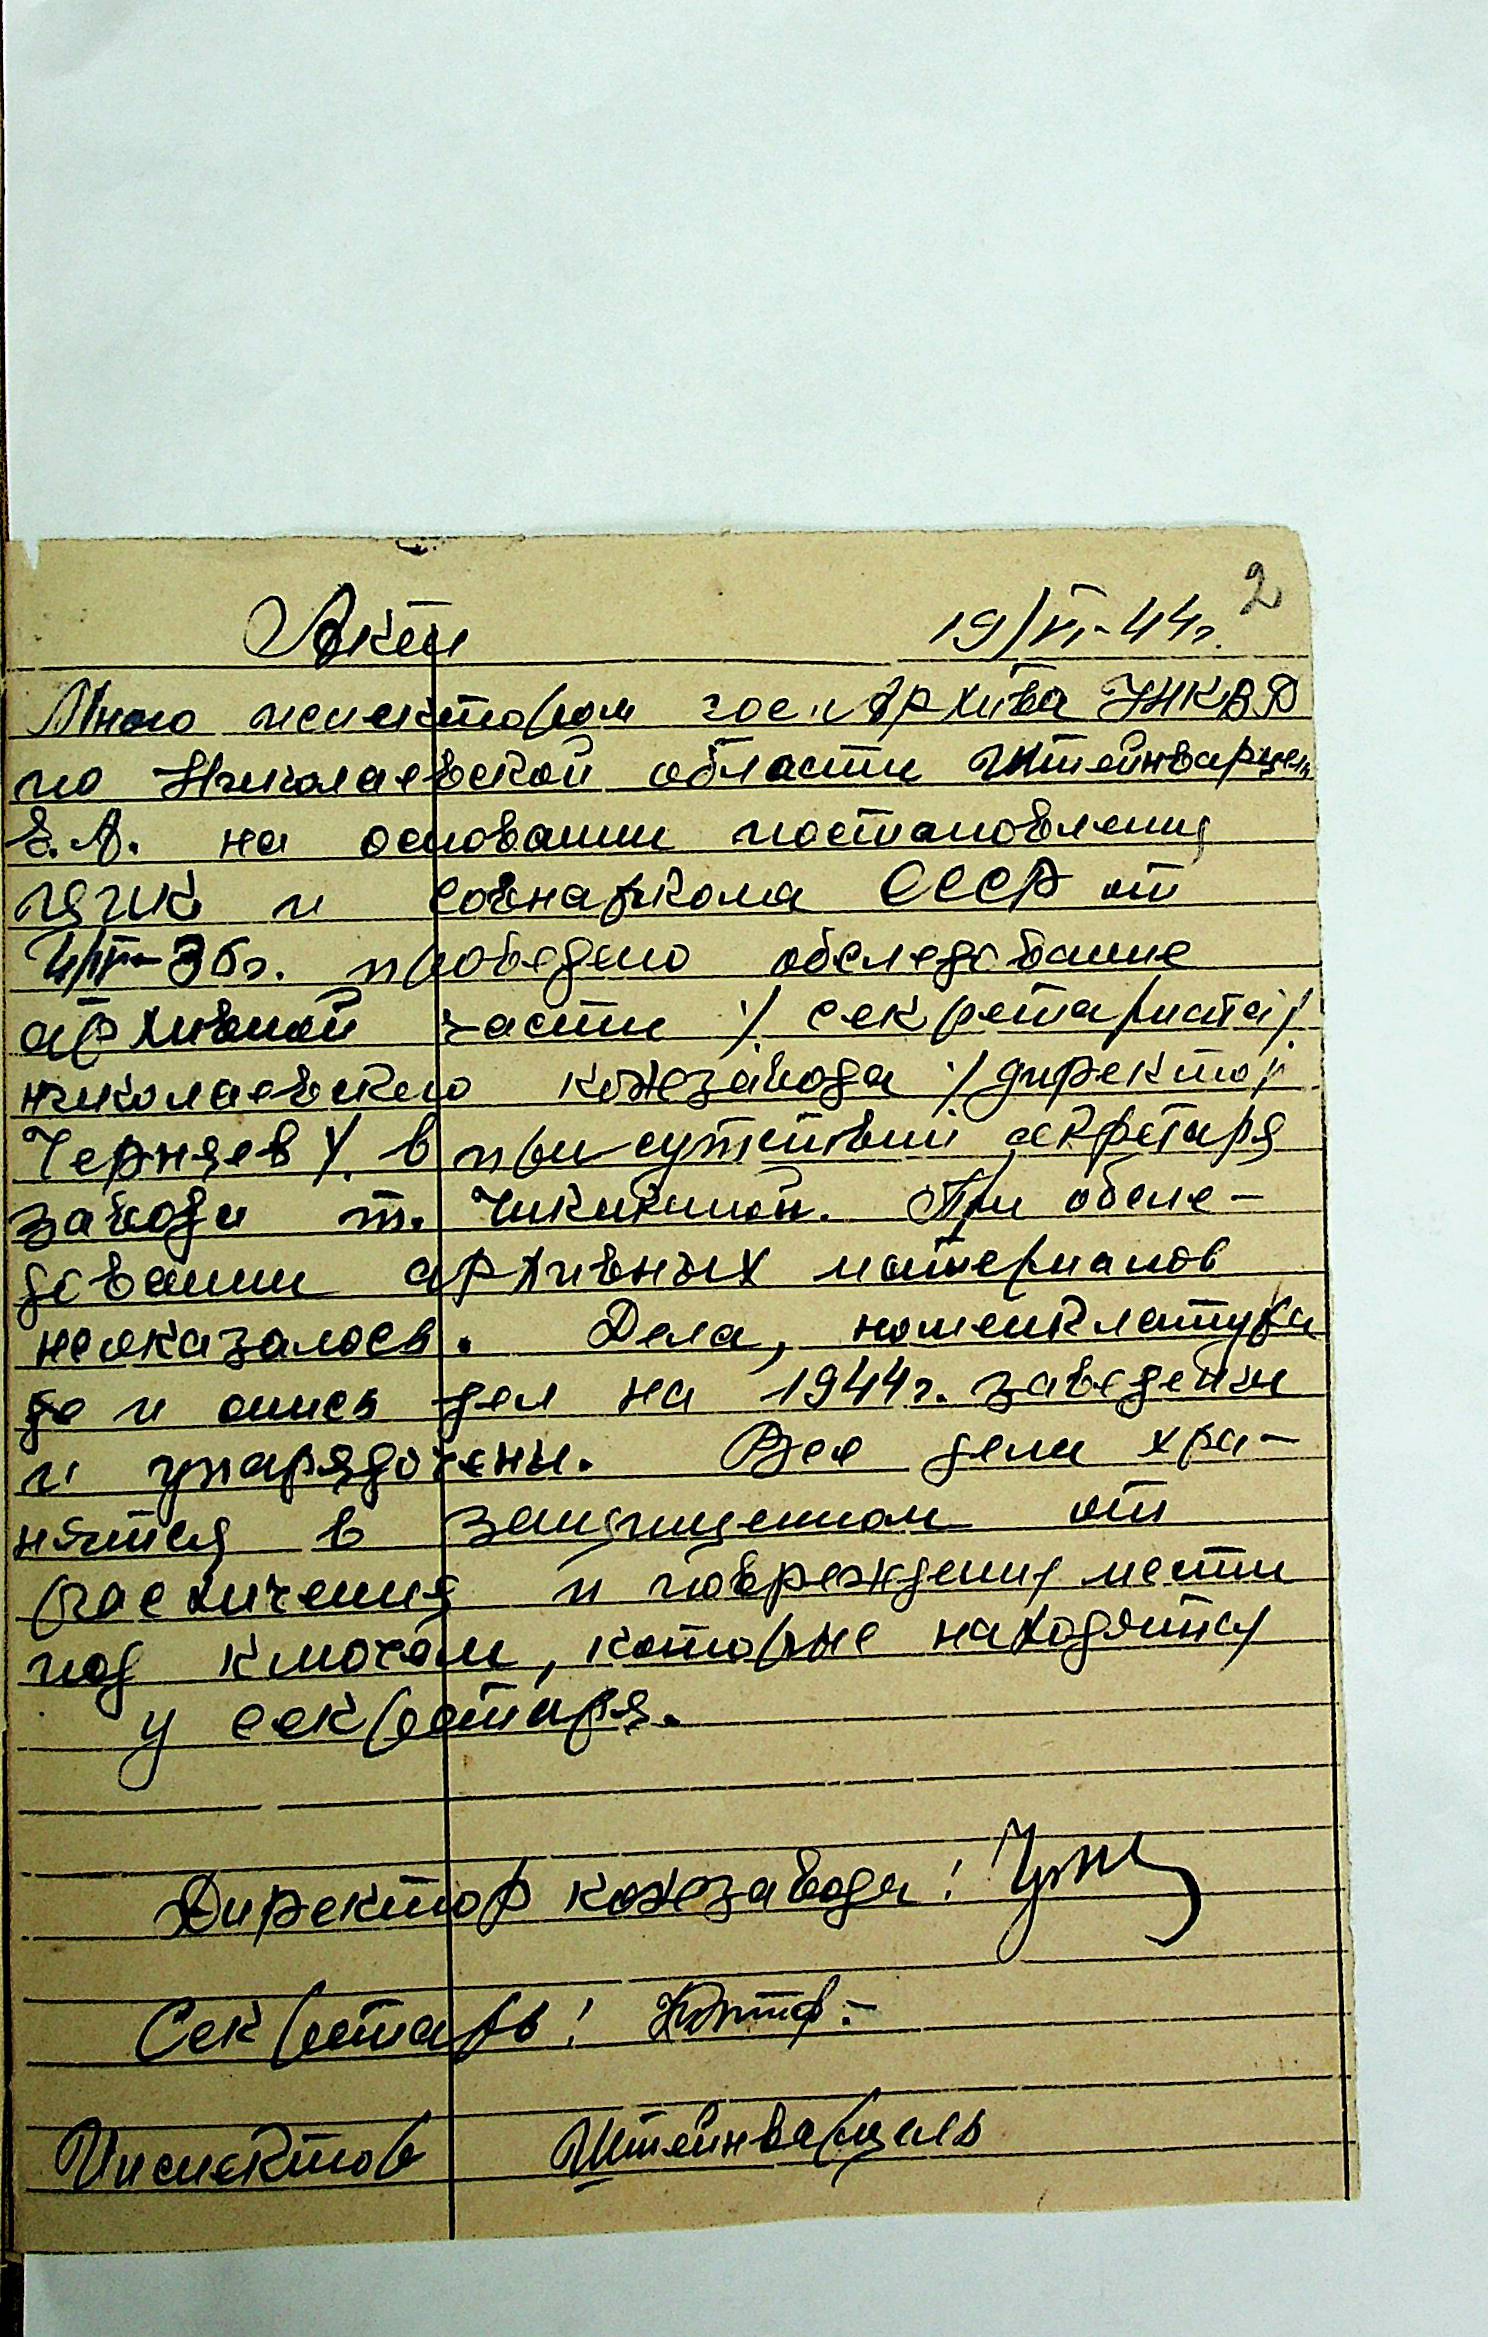 2
Акт 19/VI-44г.
Мною инспектором гос. архива УНКВД
по Николаевской области Штейнварцель
Е.А. на основании постановления
ЦИК и Совнаркома СССР от
-36г. проведено обследование
архивной части /секретариата/
николаевского кожзавода /директор
Черняев/. в присутствии секретаря
завода т. При обсле-
довании архивных материалов
неоказалось. Дела, номенклатура
де и опись дел на 1944г. заведены
и упарядочены. Все дела хра-
нятся в защищенном от
расхичения и повреждения месте
под ключем, которые находятся
у секретаря.
Директор кожезавода:
Секретарь:
Инспектор Штейнварцель